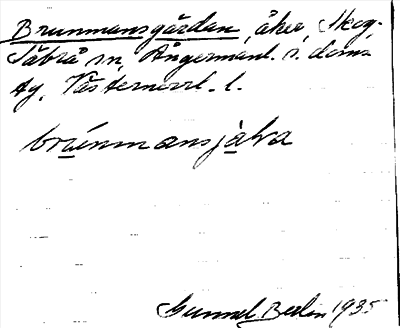 Brunnmansgården, åker, Skog,
Säbrå sn, Ångermanl. s. doms
ag, Västernorrl. l.
brúnmansjàḷva
Gunnel Berlin 1935